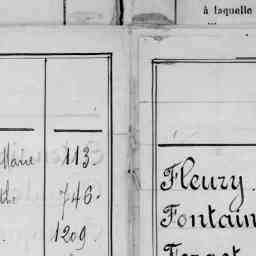 à laquelle
Marie 113.
746.
1209.
Fleury.
Fontain
Forget